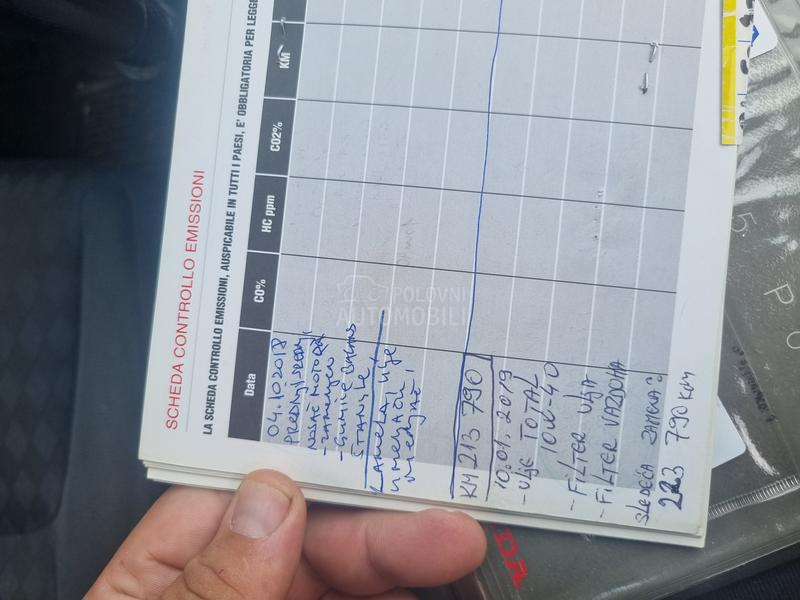 SCHEDA CONTROLLO EMISSIONI
LA SCHEDA CONTROLLO EMISSIONI, AUSPICABILE IN TUTTI I PAESI, E' OBBLIGATORIA PER LEGGE
Data
CO%
HC ppm
CO2%
KM
04.10.2018
PREDNJI SREDNJI
NOSAČ MOTORA
- GUMICE BALANS
ŠTANGLE
KM 213 790
10.01.2019
- ULJE TOTAL
10W-40
- FILTER ULJA
- FILTER VAZDUHA
SLEDEĆA ZAMENA:
223 790 KM
POLOVNI
AUTOMOBILI
DA